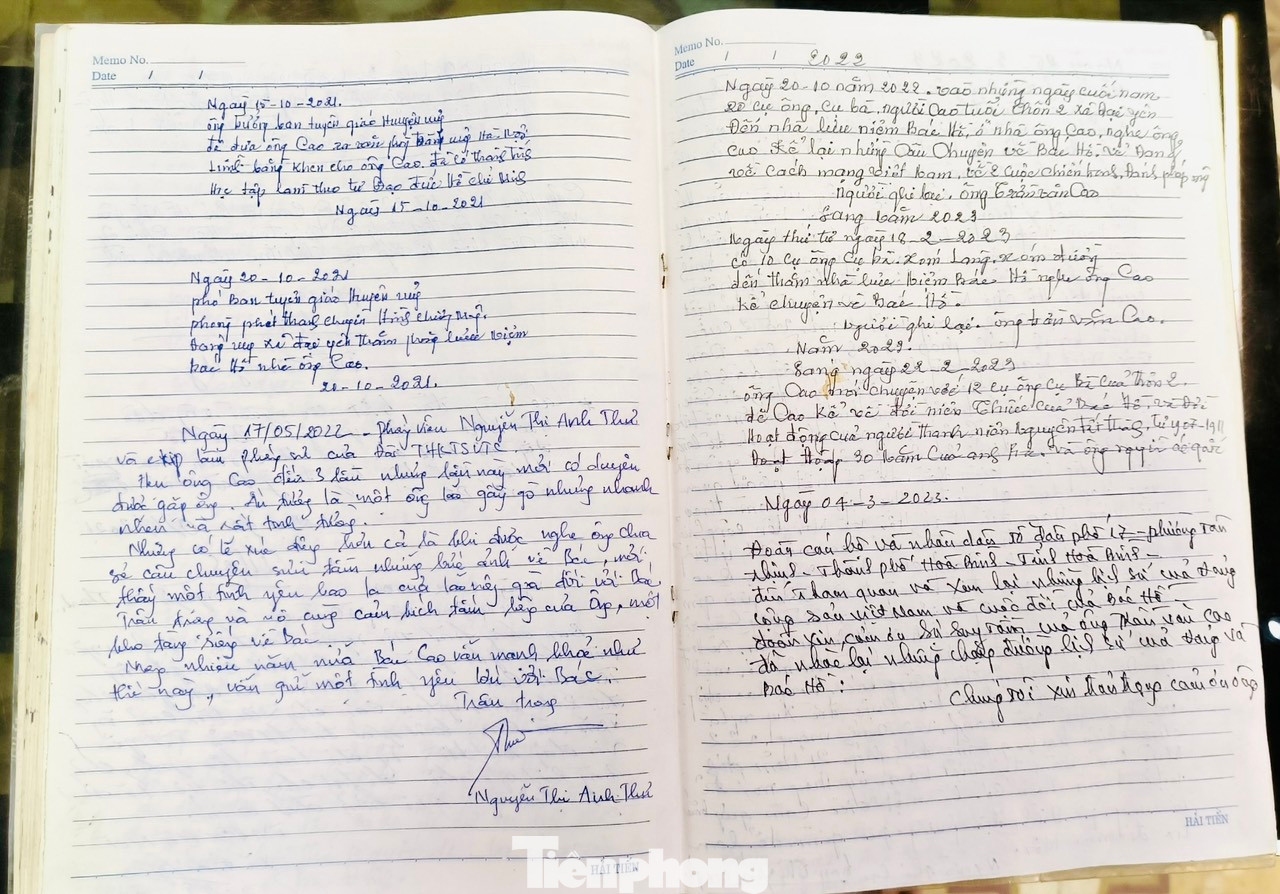 Memo No.
Date / /
Ngày 15-10-2021.
ông trưởng ban tuyên giáo Huyện uỷ
để đưa ông Cao ra văn phòng uỷ Hà Nội
bằng khen cho ông Cao. đã có thành tích
Học tập làm theo tư Đạo đức Hồ chí Minh
Ngày 15-10-2021
Ngày 20-10-2021
phó Ban tuyên giáo Huyện uỷ
phòng phát thanh chuyền hình
Đảng uỷ xã đại yên thăm phòng lưu niệm
Bác Hồ nhà ông Cao.
20-10-2021.
Ngày 17/05/2022 - Phóng viên Nguyễn Thị Anh Thư
và ekip làm phóng sự của Đài THKTSVTC
ông Cao đến 3 lần nhưng lần này mới có duyên
được gặp ông. Ấn tượng là một ông lão gầy gò nhưng nhanh
nhẹn và rất tinh tường.
Nhưng có lẽ xúc động hơn cả là khi được nghe ông chia
sẻ câu chuyện sưu tầm những bức ảnh về Bác, mới
thấy một tình yêu bao la của lão đối với Bác
Trân trọng và vô cùng cảm kích tấm lòng của ông, một
kho tàng sống về Bác
Mong nhiều năm nữa Bác Cao vẫn mạnh khoẻ như
thế này, vẫn giữ một tình yêu lớn với Bác.
Trân trọng
Thư
Nguyễn Thị Anh Thư
HẢI TIẾN
Memo No.
Date / / 2022
Ngày 20-10 năm 2022. vào những ngày cuối năm
20 cụ ông, cụ bà, người cao tuổi thôn 2 xã Đại yên
Đến nhà lưu niệm Bác Hồ, ở nhà ông Cao, nghe ông
Cao kể lại những câu chuyện về Bác Hồ. về Đảng
về cách mạng việt nam, về 2 cuộc chiến tranh, Đánh pháp
người ghi lại, ông trần văn Cao
Sang năm 2023
Ngày thứ tư ngày 18-2-2023
có 10 cụ ông cụ bà. xóm Làng, xóm đường
đến thăm nhà lưu niệm Bác Hồ nghe ông Cao
kể chuyện về Bác Hồ.
người ghi lại. ông trần văn Cao.
Năm 2023.
Sang ngày 22-2-2023
ông Cao nói chuyện với 12 cụ ông cụ bà của thôn 2.
để Cao kể về đời niên thiếu của Bác Hồ và Đời
Hoạt động của người thanh niên Nguyễn tất thành, từ 1907-1911
Hoạt động 30 năm và ông nguyễn ái quốc
Ngày 04-3-2023.
Đoàn cán bộ và nhân dân tổ dân phố 17 - phường Tân
thịnh - Thành phố Hoà Bình - Tỉnh Hoà Bình -
đến tham quan và xem lại những lịch sử của Đảng
cộng sản việt Nam và cuộc đời của Bác Hồ
đoàn xin cảm ơn sự sưu tầm của ông trần văn cao
đã nhắc lại những chặng đường lịch sử của Đảng và
Bác Hồ!
Chúng tôi xin trân trọng cảm ơn ông
HẢI TIẾN
Tiềnphong